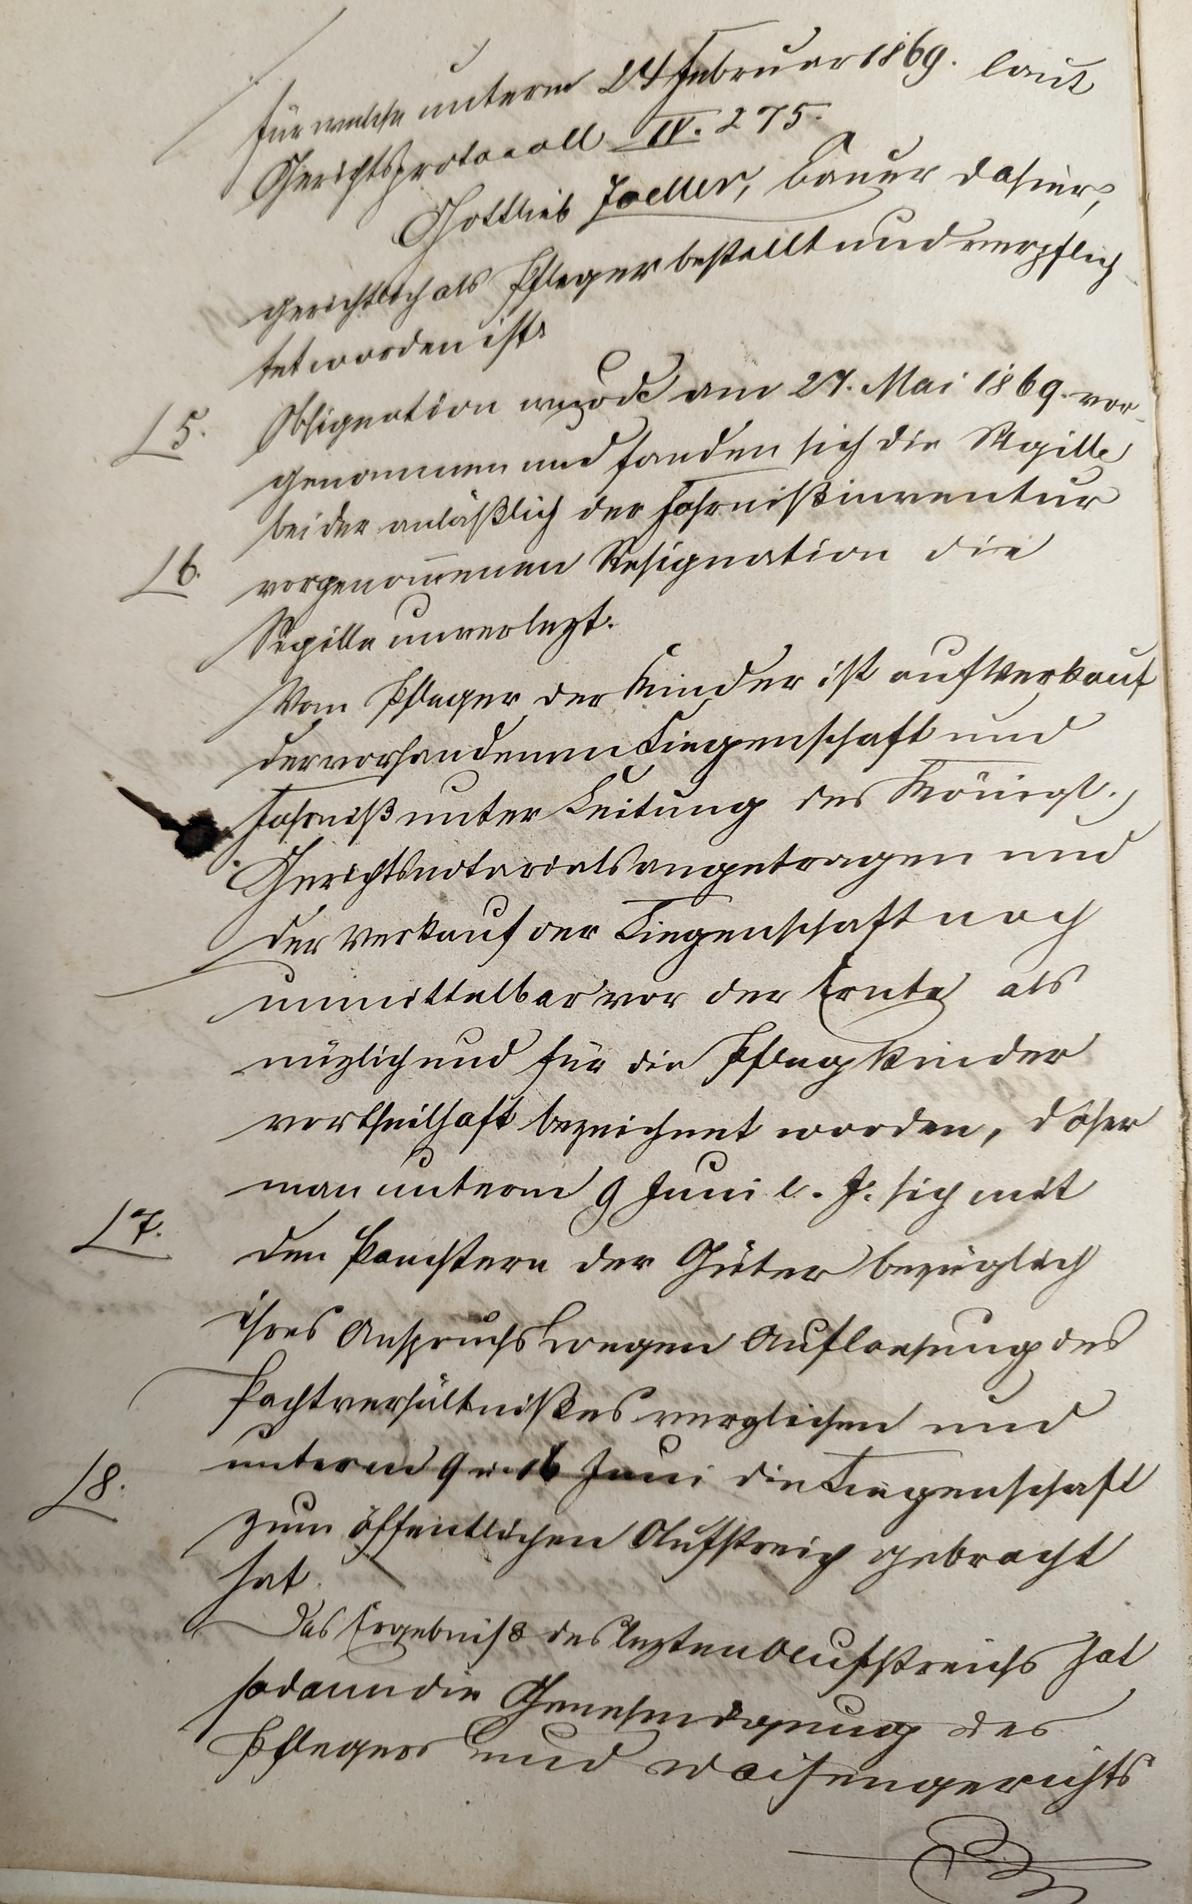 für welche unterm 24 Februar 1869. laut
Gerichtsprotocoll IV. 275.
Gottlieb Joeller, Bauer dahier,
gerichtlich als Pfleger bestellt und verpflich
tet worden ist.
L 5. Obsignation wurde am 27. Mai 1869. vor-
genommen und fanden sich die Sigille
bei der anläßlich der Fahrnißinventur
L 6. vorgenommenen Resignation die
Sigille unverlezt.
Vom Pfleger der Kinder ist auf Verkauf
der vorhandenen Liegenschaft und
Fahrniß unter Leitung des Königl.
Gerichtsnotariats angetragen und
der Verkauf der Liegenschaft noch
unmittelbar vor der Ernte als
nüzlich und für die Pflegkinder
vortheilhaft bezeichnet worden, daher
man unterm 9 Juni l. J. sich mit
L 7. den Paechtern der Güter bezüglich
ihres Anspruchs wegen Aufloesung des
Pachtverhältnißes verglichen und
L 8. unterm 9 u. 16 Juni die Liegenschaft
zum öffentlichen Aufstreich gebracht
hat.
Das Ergebniß des lezten Aufstreichs hat
sodann die Genehmigung des
Pflegers und Waisengerichts